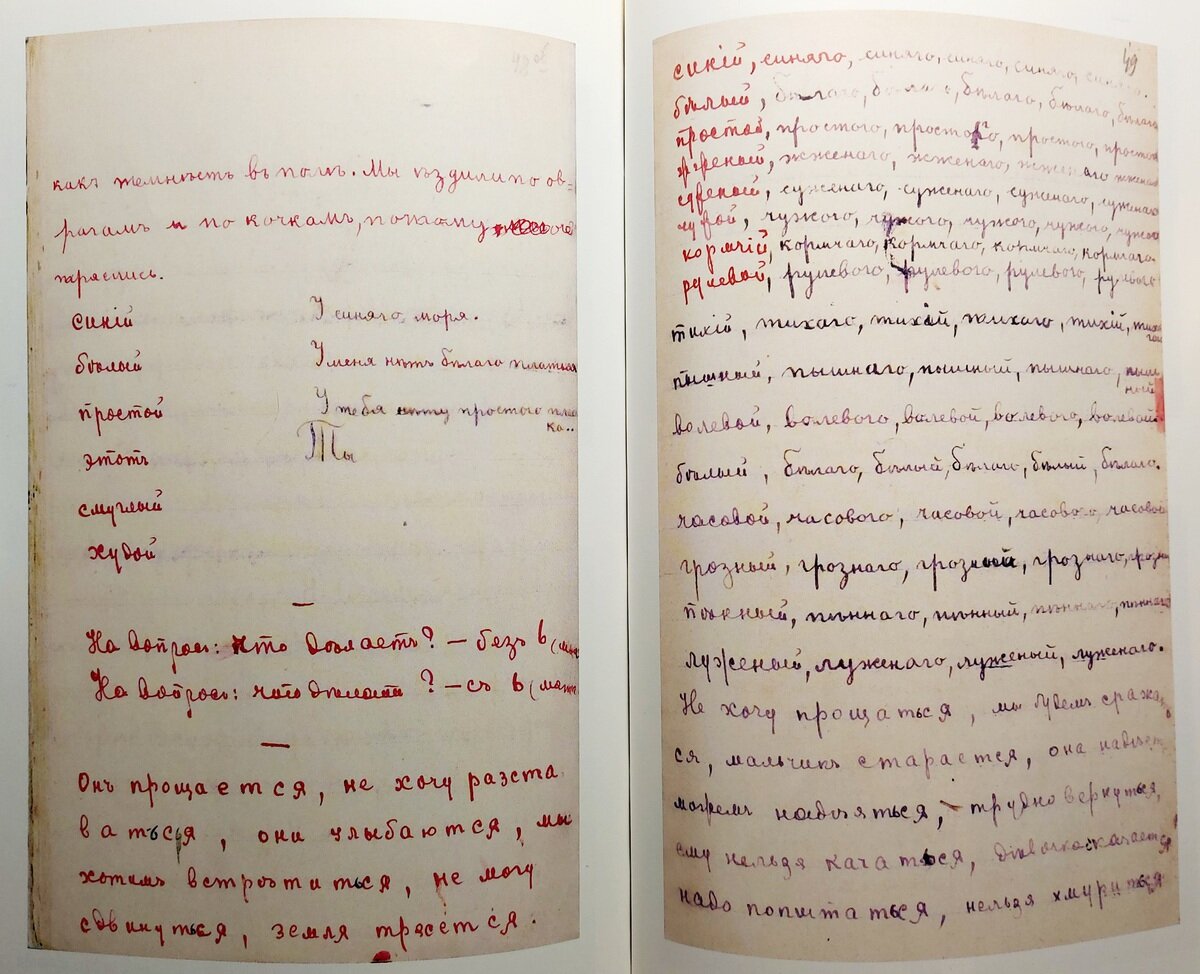 48 об
какъ темность въ поле. Мы ѣздили по ов-
рагамъ и по кочкамъ, потому
тряслись.
синій У синяго моря.
бѣлый У меня нѣтъ бѣлаго платка
простой У тебя нѣту простого пла
ка..
этотъ Ты
смуглый
худой
—
На вопросъ: что дѣлаетъ? — безъ ь (мя
На вопросъ: что дѣлать? — съ ь (мя
—
Онъ прощается, не хочу разста
ваться, они улыбаются, мы
хотимъ встрѣтиться, не могу
сдвинуться, земля трясется.
49
синій, синяго, синяго, синяго, синяго, синяго.
бѣлый, бѣлаго, бѣлаго, бѣлаго, бѣлаго, бѣлаго
простой, простого, простого, простого, простого
жженый, жженаго, жженаго, жженаго жженаго
суженый, суженаго, суженаго, суженаго, суженаго
чужой, чужого, чужого, чужого, чужого
кормчій, кормчаго, кормчаго, кормчаго, кормчаго.
рулевой, рулевого, рулевого, рулевого, рулевого
тихій, тихаго, тихій, тихаго, тихій, тиха
го
пышный, пышнаго, пышный, пышнаго, пыш
ный
волевой, волевого, волевой, волевого, волевой
бѣлый, бѣлаго, бѣлый, бѣлаго, бѣлый, бѣлаго.
часовой, часового, часовой, часового, часовой
грозный, грознаго, грозный, грознаго, грозны
пѣнный, пѣннаго, пѣнный, пѣннаго, пѣнный
луженый, луженаго, луженый, луженаго.
Не хочу прощаться, мы будемъ сража
ся, мальчикъ старается, она надѣет
можемъ надѣяться, — трудно вернуться,
ему нельзя качаться, дѣвочка качается
надо попытаться, нельзя хмуриться